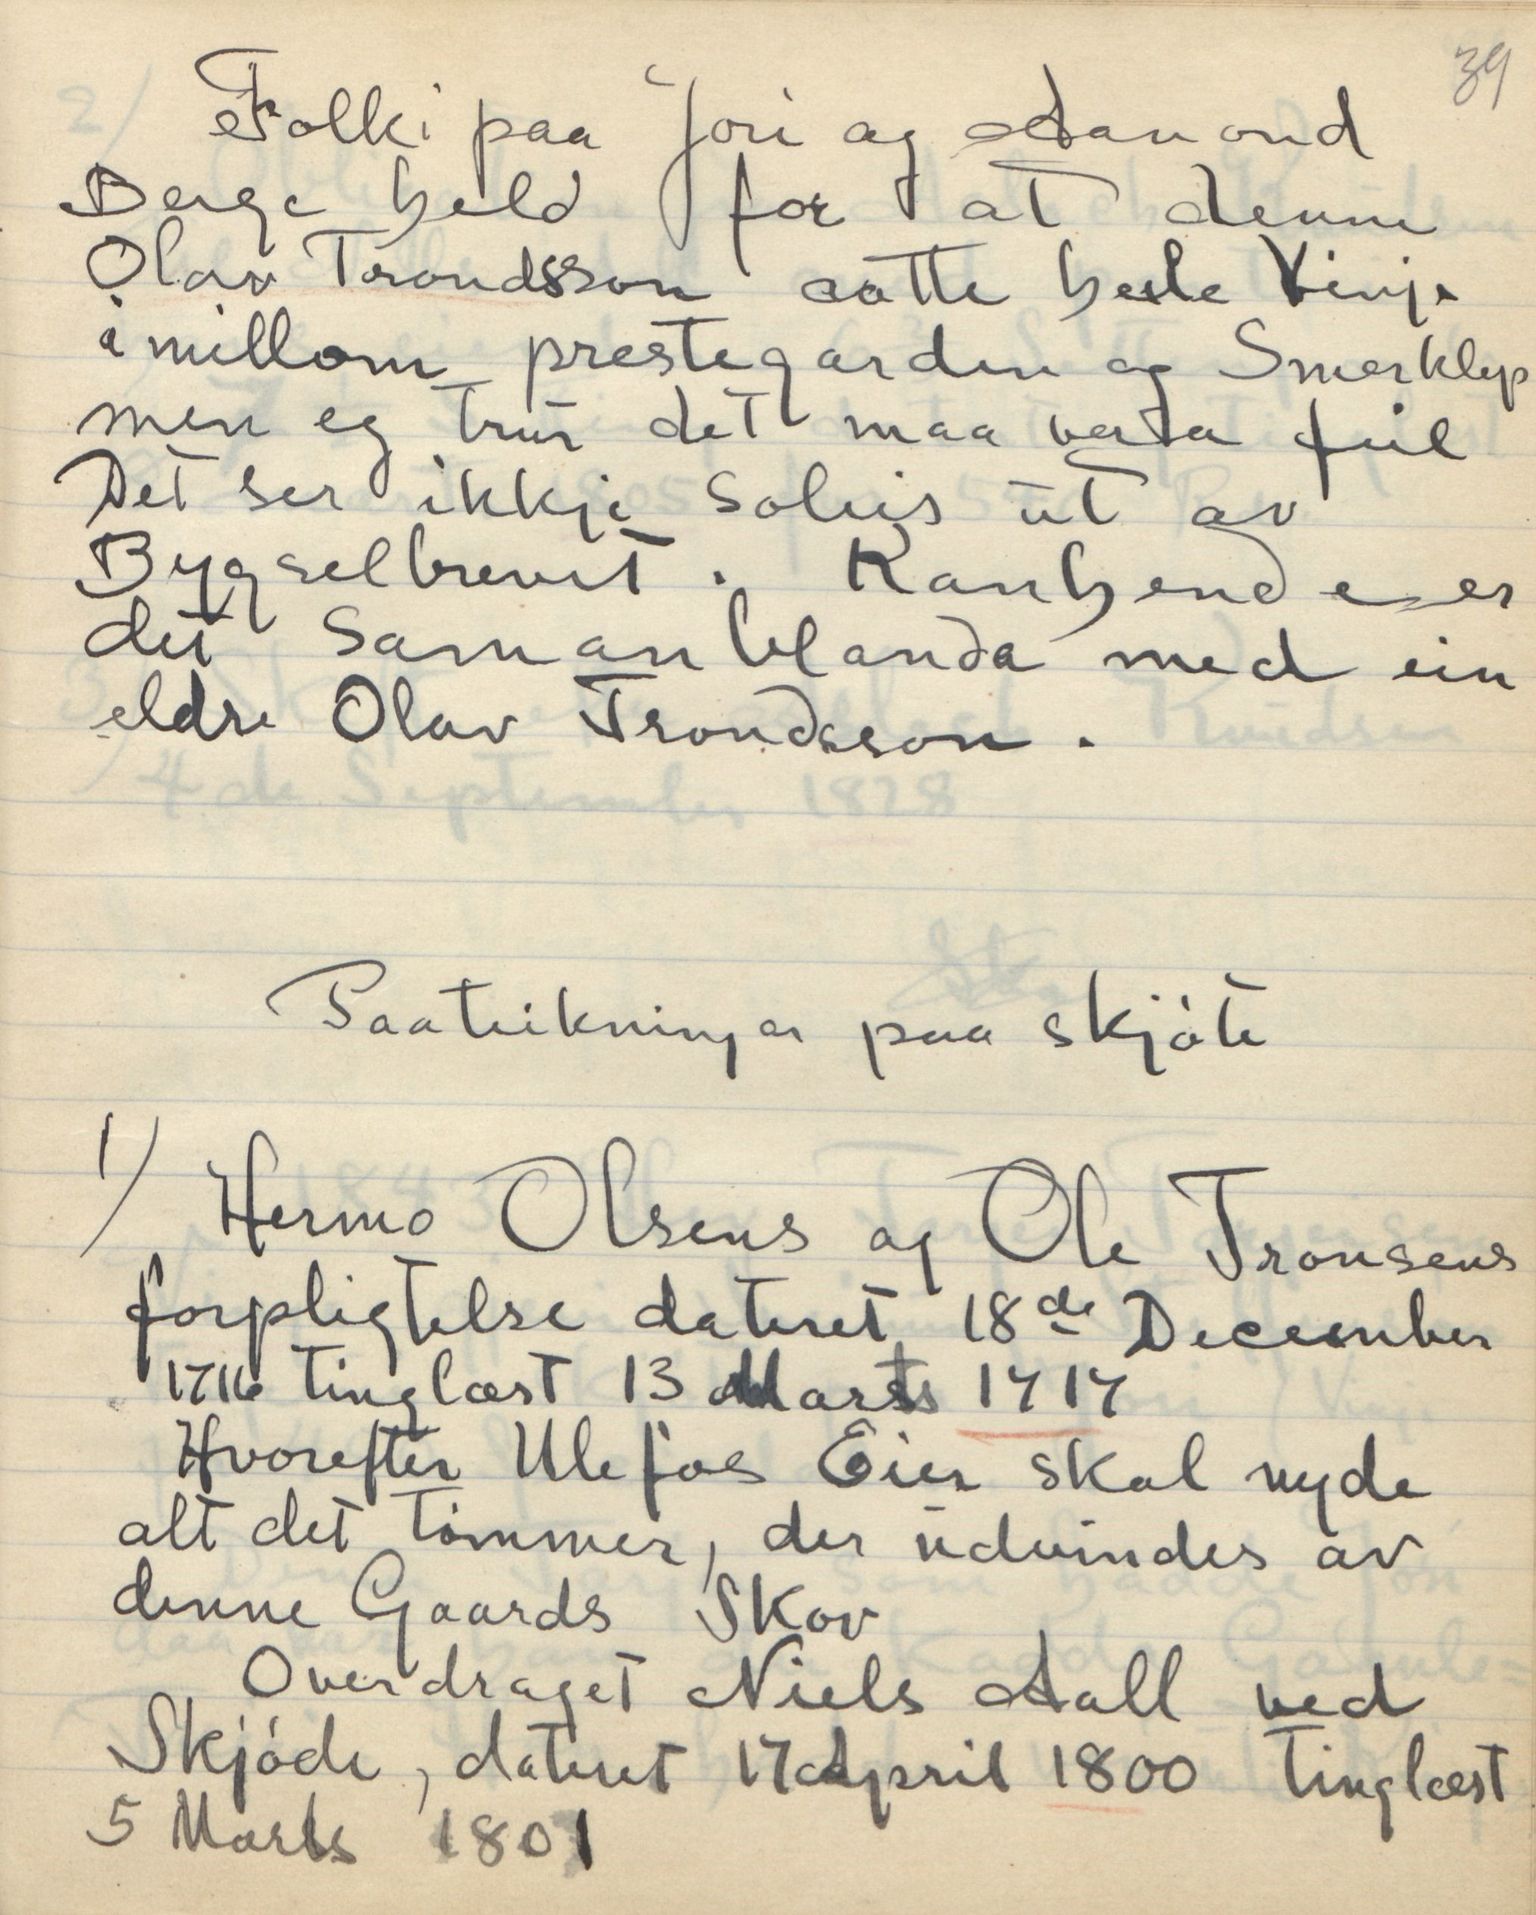 39
Folki paa Jori og Aanond
Berge held for at denne
Olav Trondsson aatte heile Vinje
imillom prestegarden og Smørklep
men eg trur det maa vera feil
Det ser ikkje soleis ut av
Bygselbrevet. Kanhende er
det samanblanda med ein
eldre Olav Trondsson.
Paateikningar paa skjöte
1/ Hermo Olsens og Ole Tronsens
forpligtelse dateret 18de December
1716 tinglæst 13 Marts 1717
Hvorefter Ulefos Eier skal nyde
alt det tömmer, der udvindes av
denne Gaards Skov
Overdraget Niels Aall ved
Skjöde, dateret 17 April 1800 tinglæst
5 Marts 1801